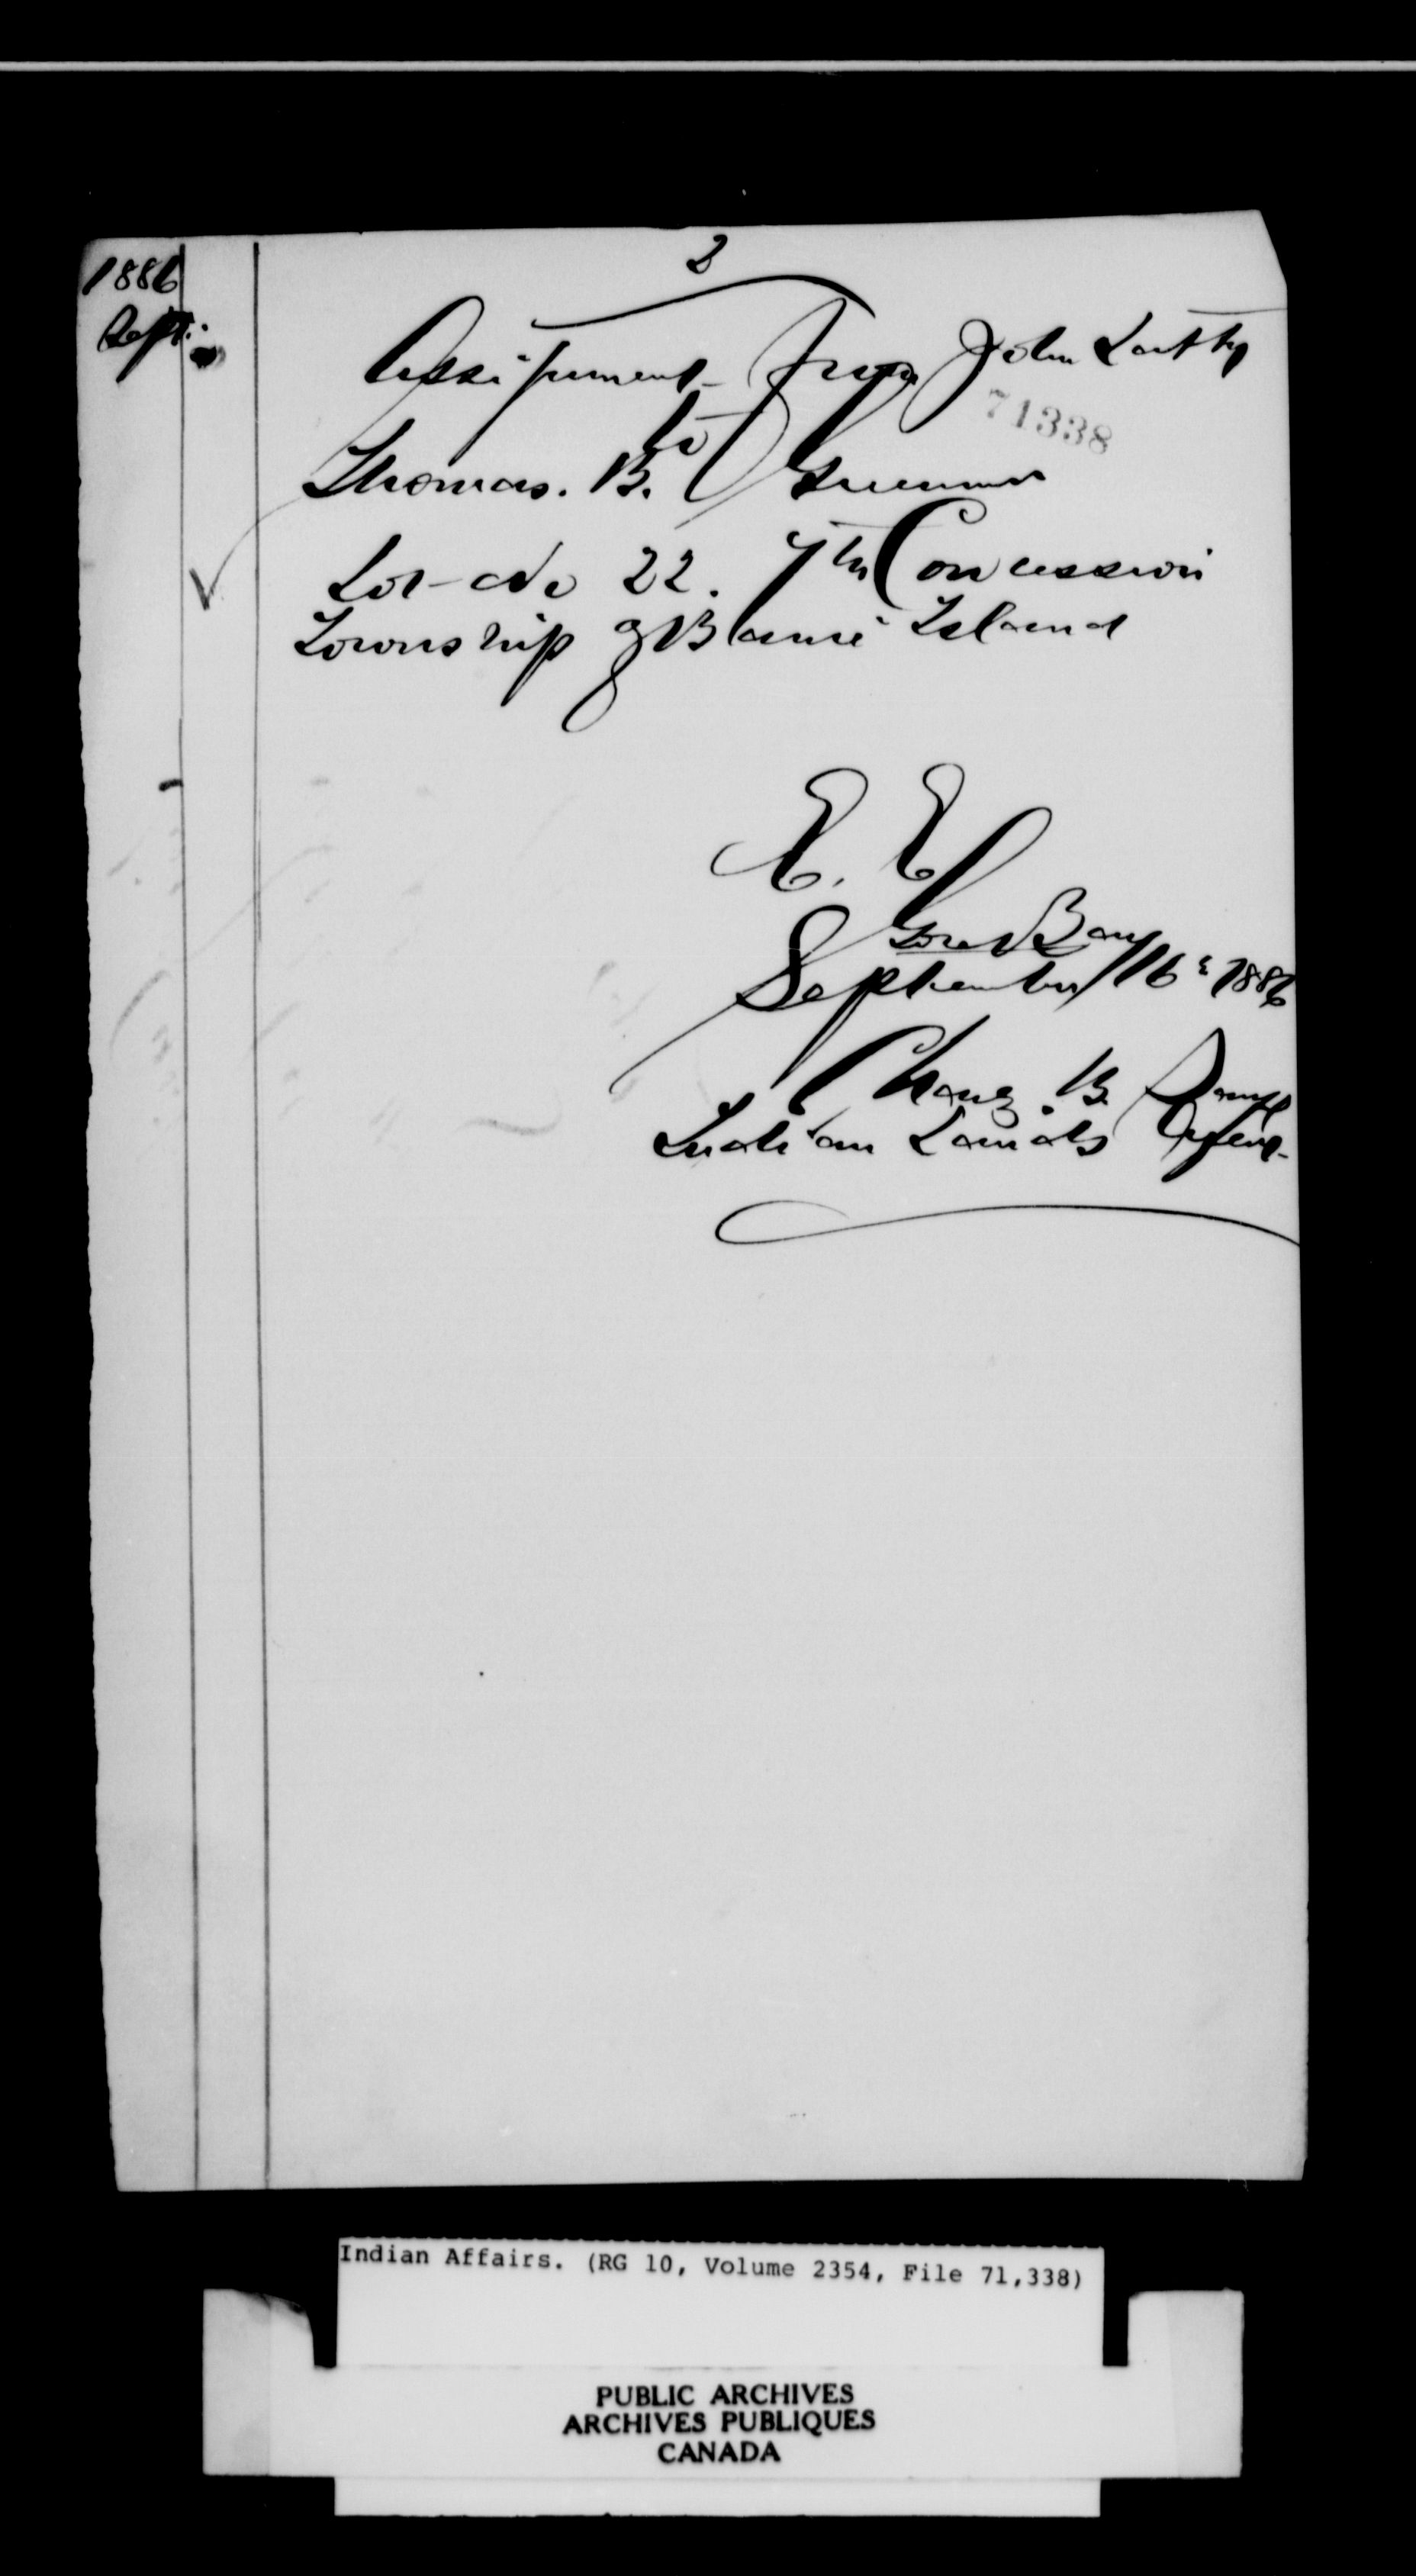 2
1886
Sept.
Assignment from John Latthy
71338
to
Thomas. B.
Lot No 22. 7th Concession
Township of Barrie Island
E. E.
Gore Bay
September 16 1886
Chas. B. Savage
Indian Lands Agent
Indian Affairs. (RG 10, Volume 2354, File 71,338)
PUBLIC ARCHIVES
ARCHIVES PUBLIQUES
CANADA